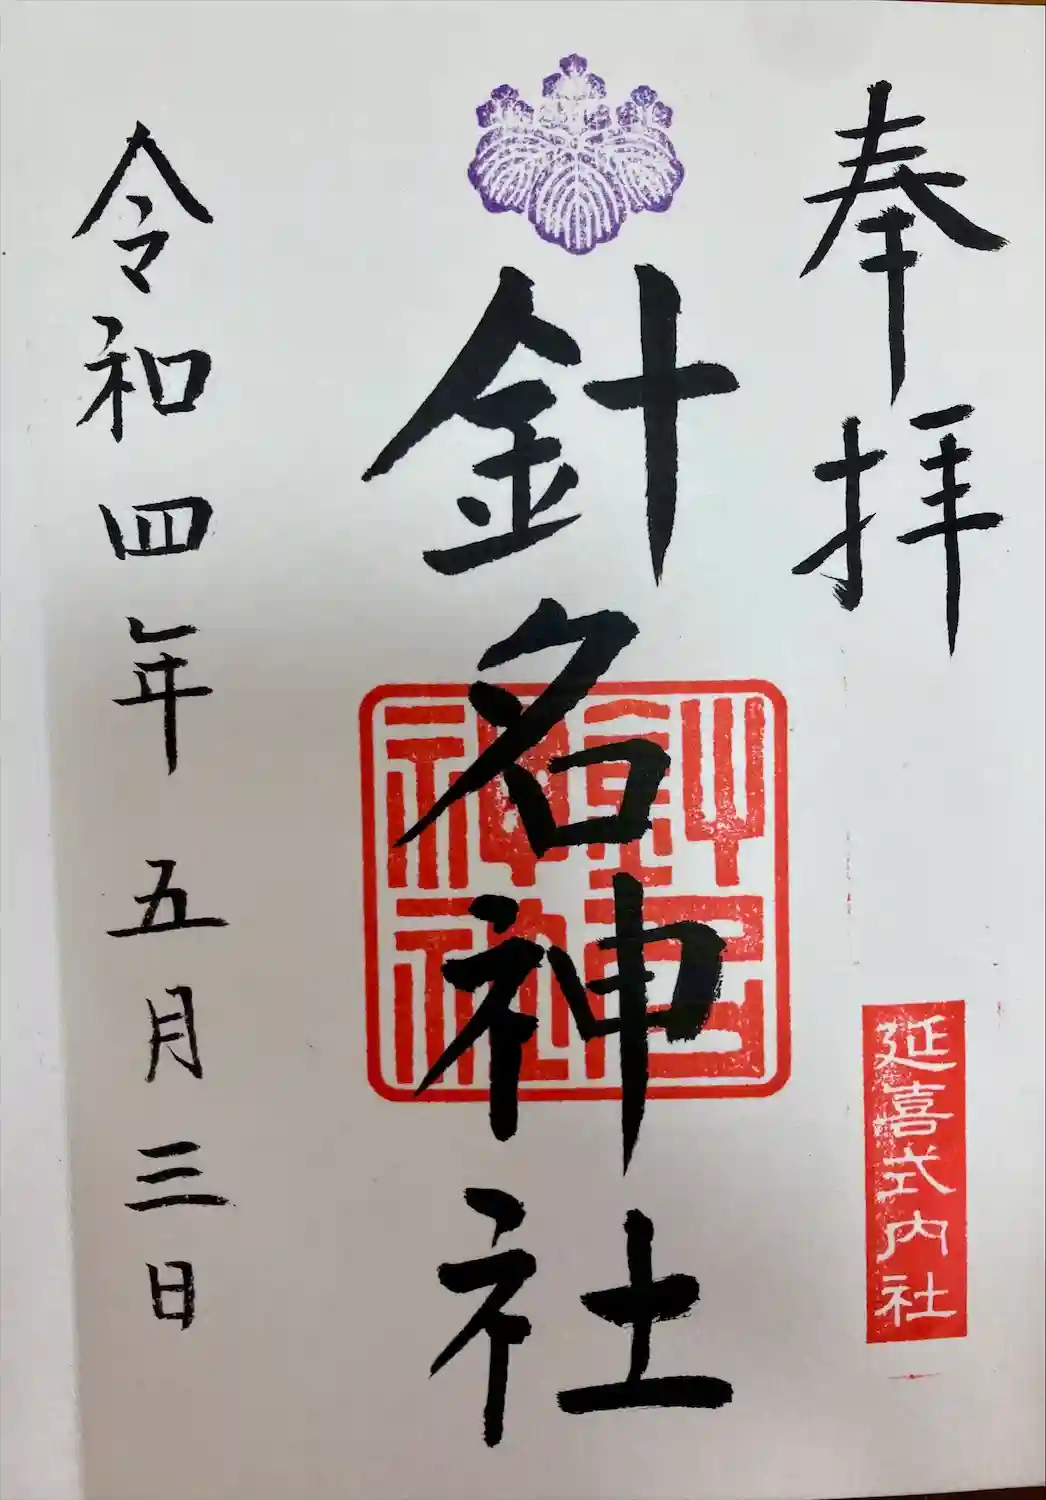 奉拝
延喜式内社
針名神社
針名神社
令和四年 五月三日